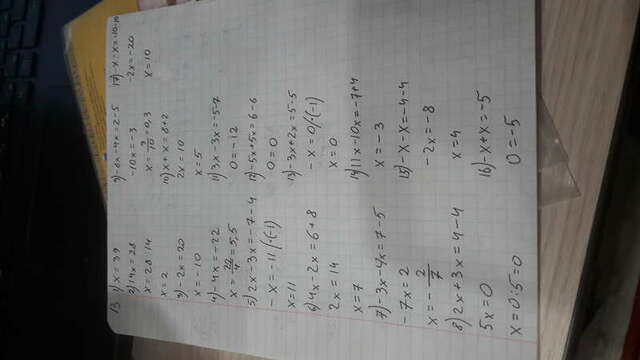 13 1) x = 39
2) 14x = 28
x = 28 : 14
x = 2
3) -2x = 20
x = -10
4) -4x = -22
x = 22/4 = 5,5
5) 2x - 3x = -7 - 4
-x = -11 /·(-1)
x = 11
6) 4x - 2x = 6 + 8
2x = 14
x = 7
7) -3x - 4x = 7 - 5
-7x = 2
x = - 2/7
8) 2x + 3x = 4 - 4
5x = 0
x = 0 : 5 = 0
9) -6x - 4x = 2 - 5
-10x = -3
x = 3/10 = 0,3
10) x + x = 8 + 2
2x = 10
x = 5
11) 3x - 3x = -5 - 7
0 = -12
12) -5x + 5x = 6 - 6
0 = 0
13) -3x + 2x = 5 - 5
-x = 0 /·(-1)
x = 0
14) 11x - 10x = -7 + 4
x = -3
15) -x - x = -4 - 4
-2x = -8
x = 4
16) -x + x = -5
0 = -5
17) -x - x = -10 - 10
-2x = -20
x = 10